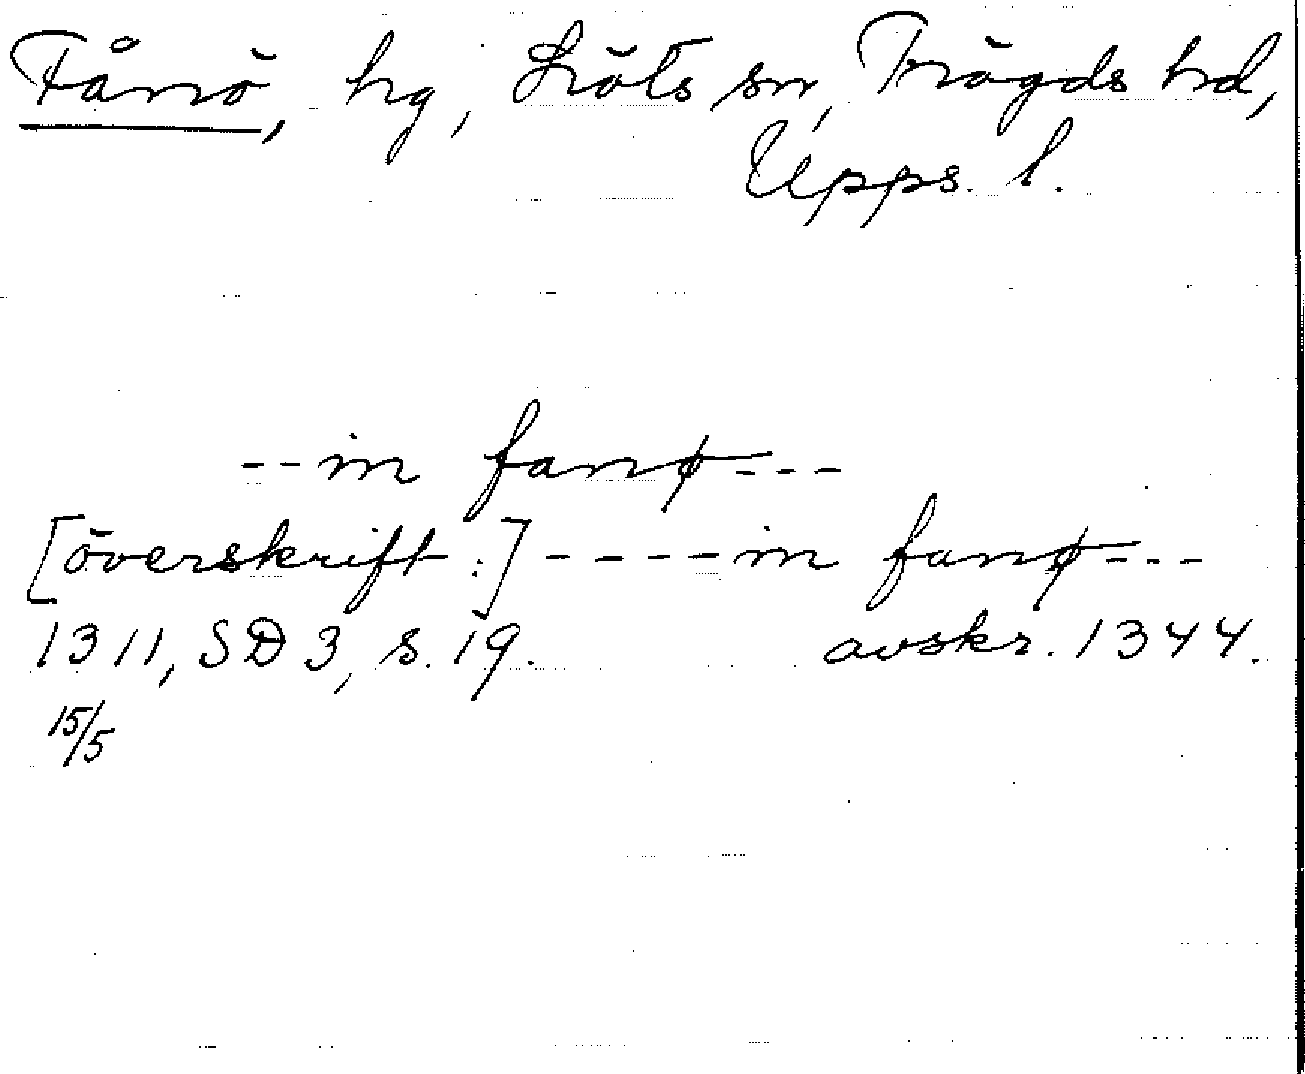 Fånö, hg, Löts sn, Trögds hd,
Upps. l.
-- in fanø ---
[överskrift:] ---- in fanø ---
1311, SD 3, s. 19. avskr. 1344.
15/5